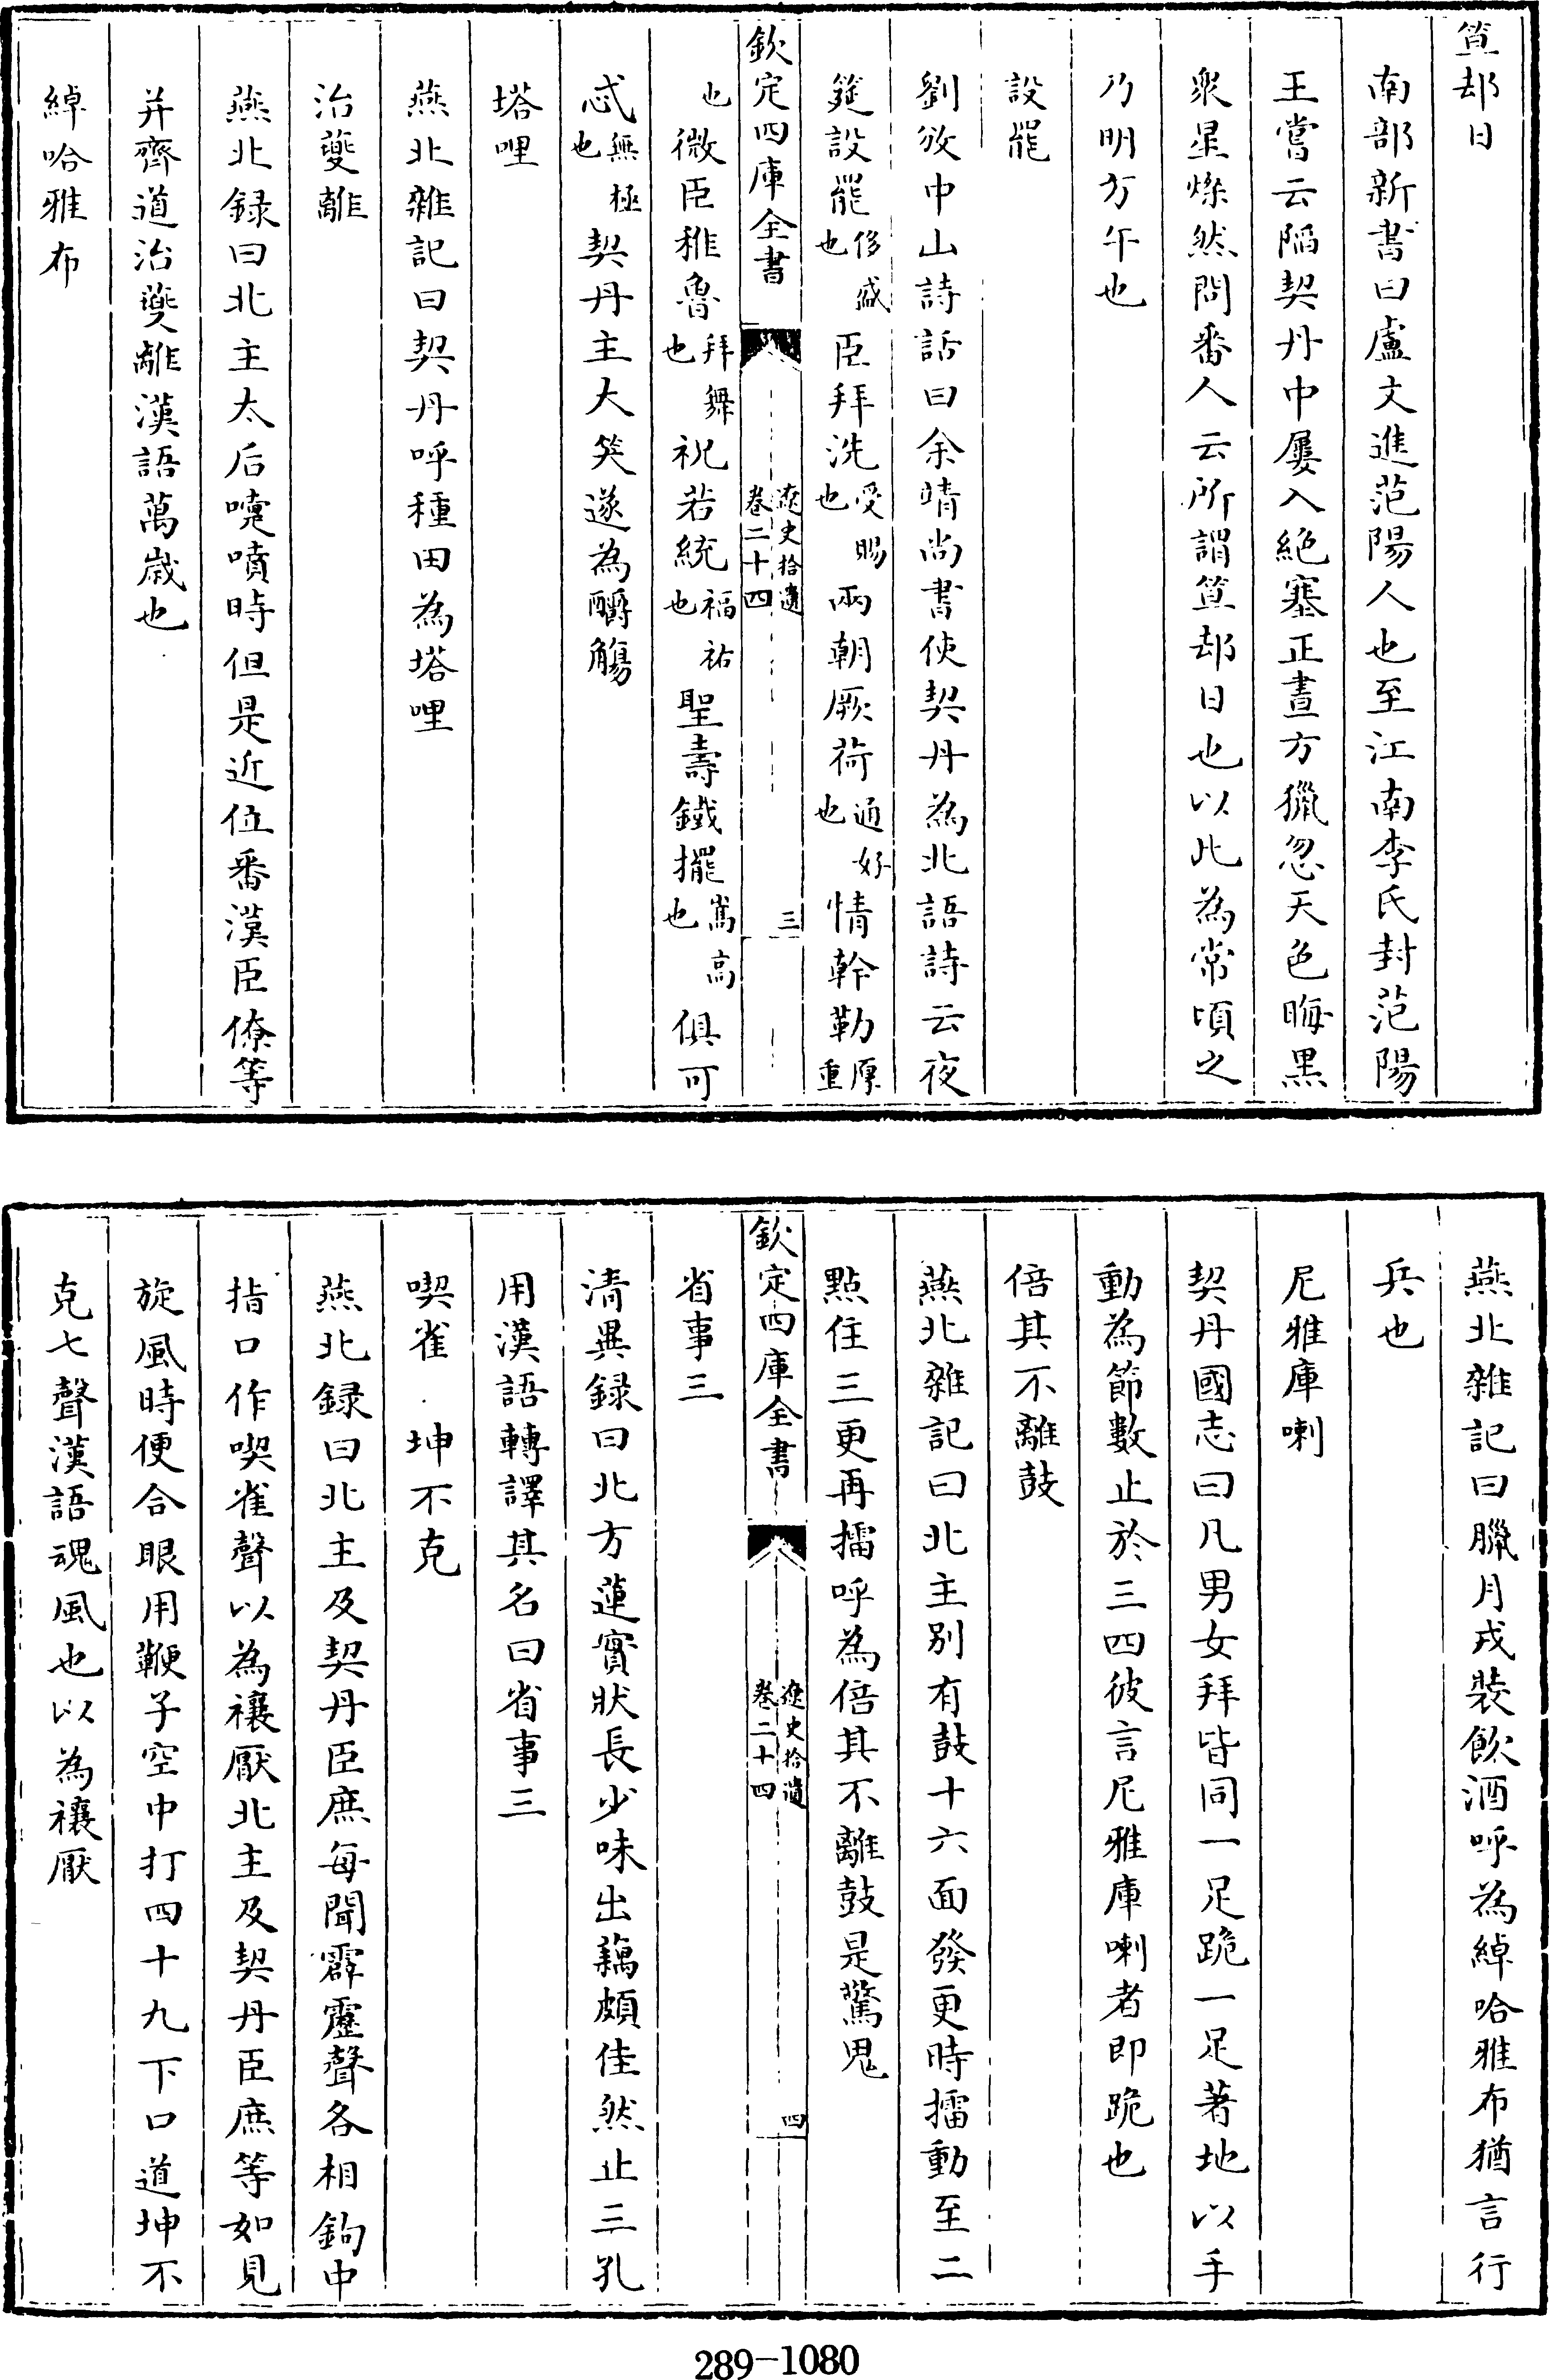 笪却日
南部新書曰盧文進范陽人也至江南李氏封范陽
王嘗云陷契丹中屢入絶塞正晝方獵忽天色晦黒
衆星燦然問番人云所謂笪却日也以此為常頃之
乃明方午也
設罷
劉攽中山詩話曰余靖尚書使契丹為北語詩云夜
筵設罷侈盛也臣拜洗受賜也兩朝厥荷通好也情幹勒厚重
欽定四庫全書
遼史拾遺
卷二十四
三
也微臣稚魯拜舞也祝若統福祐也聖壽鐵擺嵩高也俱可
忒無極也契丹主大笑遂為釂觴
塔哩
燕北雜記曰契丹呼種田為塔哩
治夔離
燕北録曰北主太后嚏噴時但是近位番漢臣僚等
并齊道治夔離漢語萬歲也
綽哈雅布
燕北雜記曰臘月戎裝飲酒呼為綽哈雅布猶言行
兵也
尼雅庫喇
契丹國志曰凡男女拜皆同一足跪一足著地以手
動為節數止於三四彼言尼雅庫喇者即跪也
倍其不離鼓
燕北雜記曰北主别有鼓十六面發更時擂動至二
點住三更再擂呼為倍其不離鼓是驚鬼
欽定四庫全書
遼史拾遺
卷二十四
四
省事三
清異録曰北方蓮實狀長少味出藕頗佳然止三孔
用漢語轉譯其名曰省事三
喫雀 坤不克
燕北録曰北主及契丹臣庶每聞霹靂聲各相鉤中
指口作喫雀聲以為禳厭北主及契丹臣庶等如見
旋風時便合眼用鞭子空中打四十九下口道坤不
克七聲漢語魂風也以為禳厭
289-1080